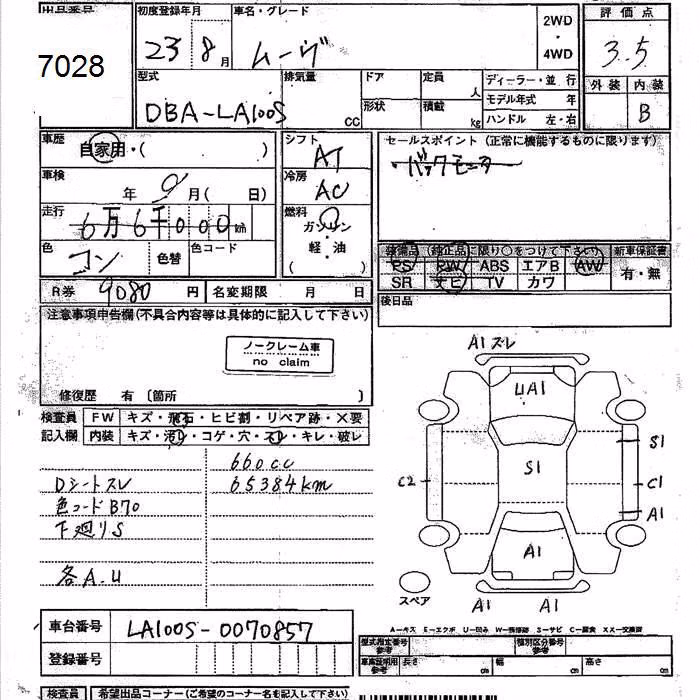 出品番号
7028
初度登録年月
23 8 月
車名・グレード
ムーヴ
2WD
・
4WD
評価点
3.5
外装 内装
B
型式
DBA-LA100S
排気量
cc
ドア
形状
定員
人
積載
kg
ディーラー・並 行
モデル年式 年
ハンドル 左・右
車歴
自家用・( )
シフト
AT
セールスポイント (正常に機能するものに限ります)
バックモニター
車検
年 9 月( 日)
冷房
AC
走行
6万6千000km
燃料
ガソリン
・
軽・油
( )
色
コン
色替
色コード
装備品 (純正品に限り○をつけて下さい)
新車保証書
PS PW ABS エアB AW
SR ナビ TV カワ
有・無
R券 9080 円
名変期限 月 日
後日品
注意事項申告欄(不具合内容等は具体的に記入して下さい)
ノークレーム車
no claim
修復歴 有 〔箇所 〕
検査員
記入欄
FW キズ・飛石・ヒビ割・リペア跡・×要
内装 キズ・汚レ・コゲ・穴・スレ・キレ・破レ
660cc
Dシートスレ
65384km
色コードB70
下廻りS
各A.U
A1ズレ
UA1
S1
S1
C2
C1
A1
A1
スペア
A1
A1
A-キズ E-エクボ U-凹み W-補修跡 S-サビ C-腐食 XX-交換済
車台番号
LA100S-0070857
登録番号
型式指定番号
参考
類別区分番号
参考
車庫証明用
参考
長さ cm
幅 cm
高さ cm
検査員
希望出品コーナー(ご希望のコーナー名を記入下さい)